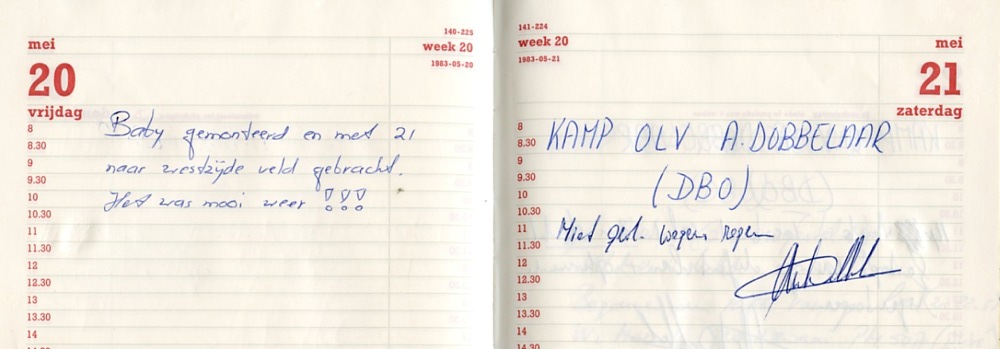 mei
140-225
week 20
20
1983-05-20
vrijdag
8
8.30
9
9.30
10
10.30
11
11.30
12
12.30
13
13.30
14
14.30
Baby gemonteerd en met 21
naar westzijde veld gebracht.
Het was mooi weer !!!
141-224
week 20
mei
1983-05-21
21
zaterdag
8
8.30
9
9.30
10
10.30
11
11.30
12
12.30
13
13.30
14
14.30
KAMP OLV A. DOBBELAAR
(DBO)
Niet gevl. wegens regen